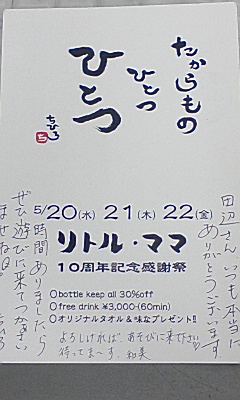 たからもの
ひとつ
ひとつ
ちひろ
5/20(水) 21(木) 22(金)
リトル・ママ
10周年記念感謝祭
○bottle keep all 30%off
○free drink ¥3,000-(60min)
○オリジナルタオル&味なプレゼント!!
田辺さん いつも本当に
ありがとうございます
時間ありましたら
ぜひ遊びに来て下さい
ませね
よろしければ、あそびに来て下さい
待ってま〜す. 和美